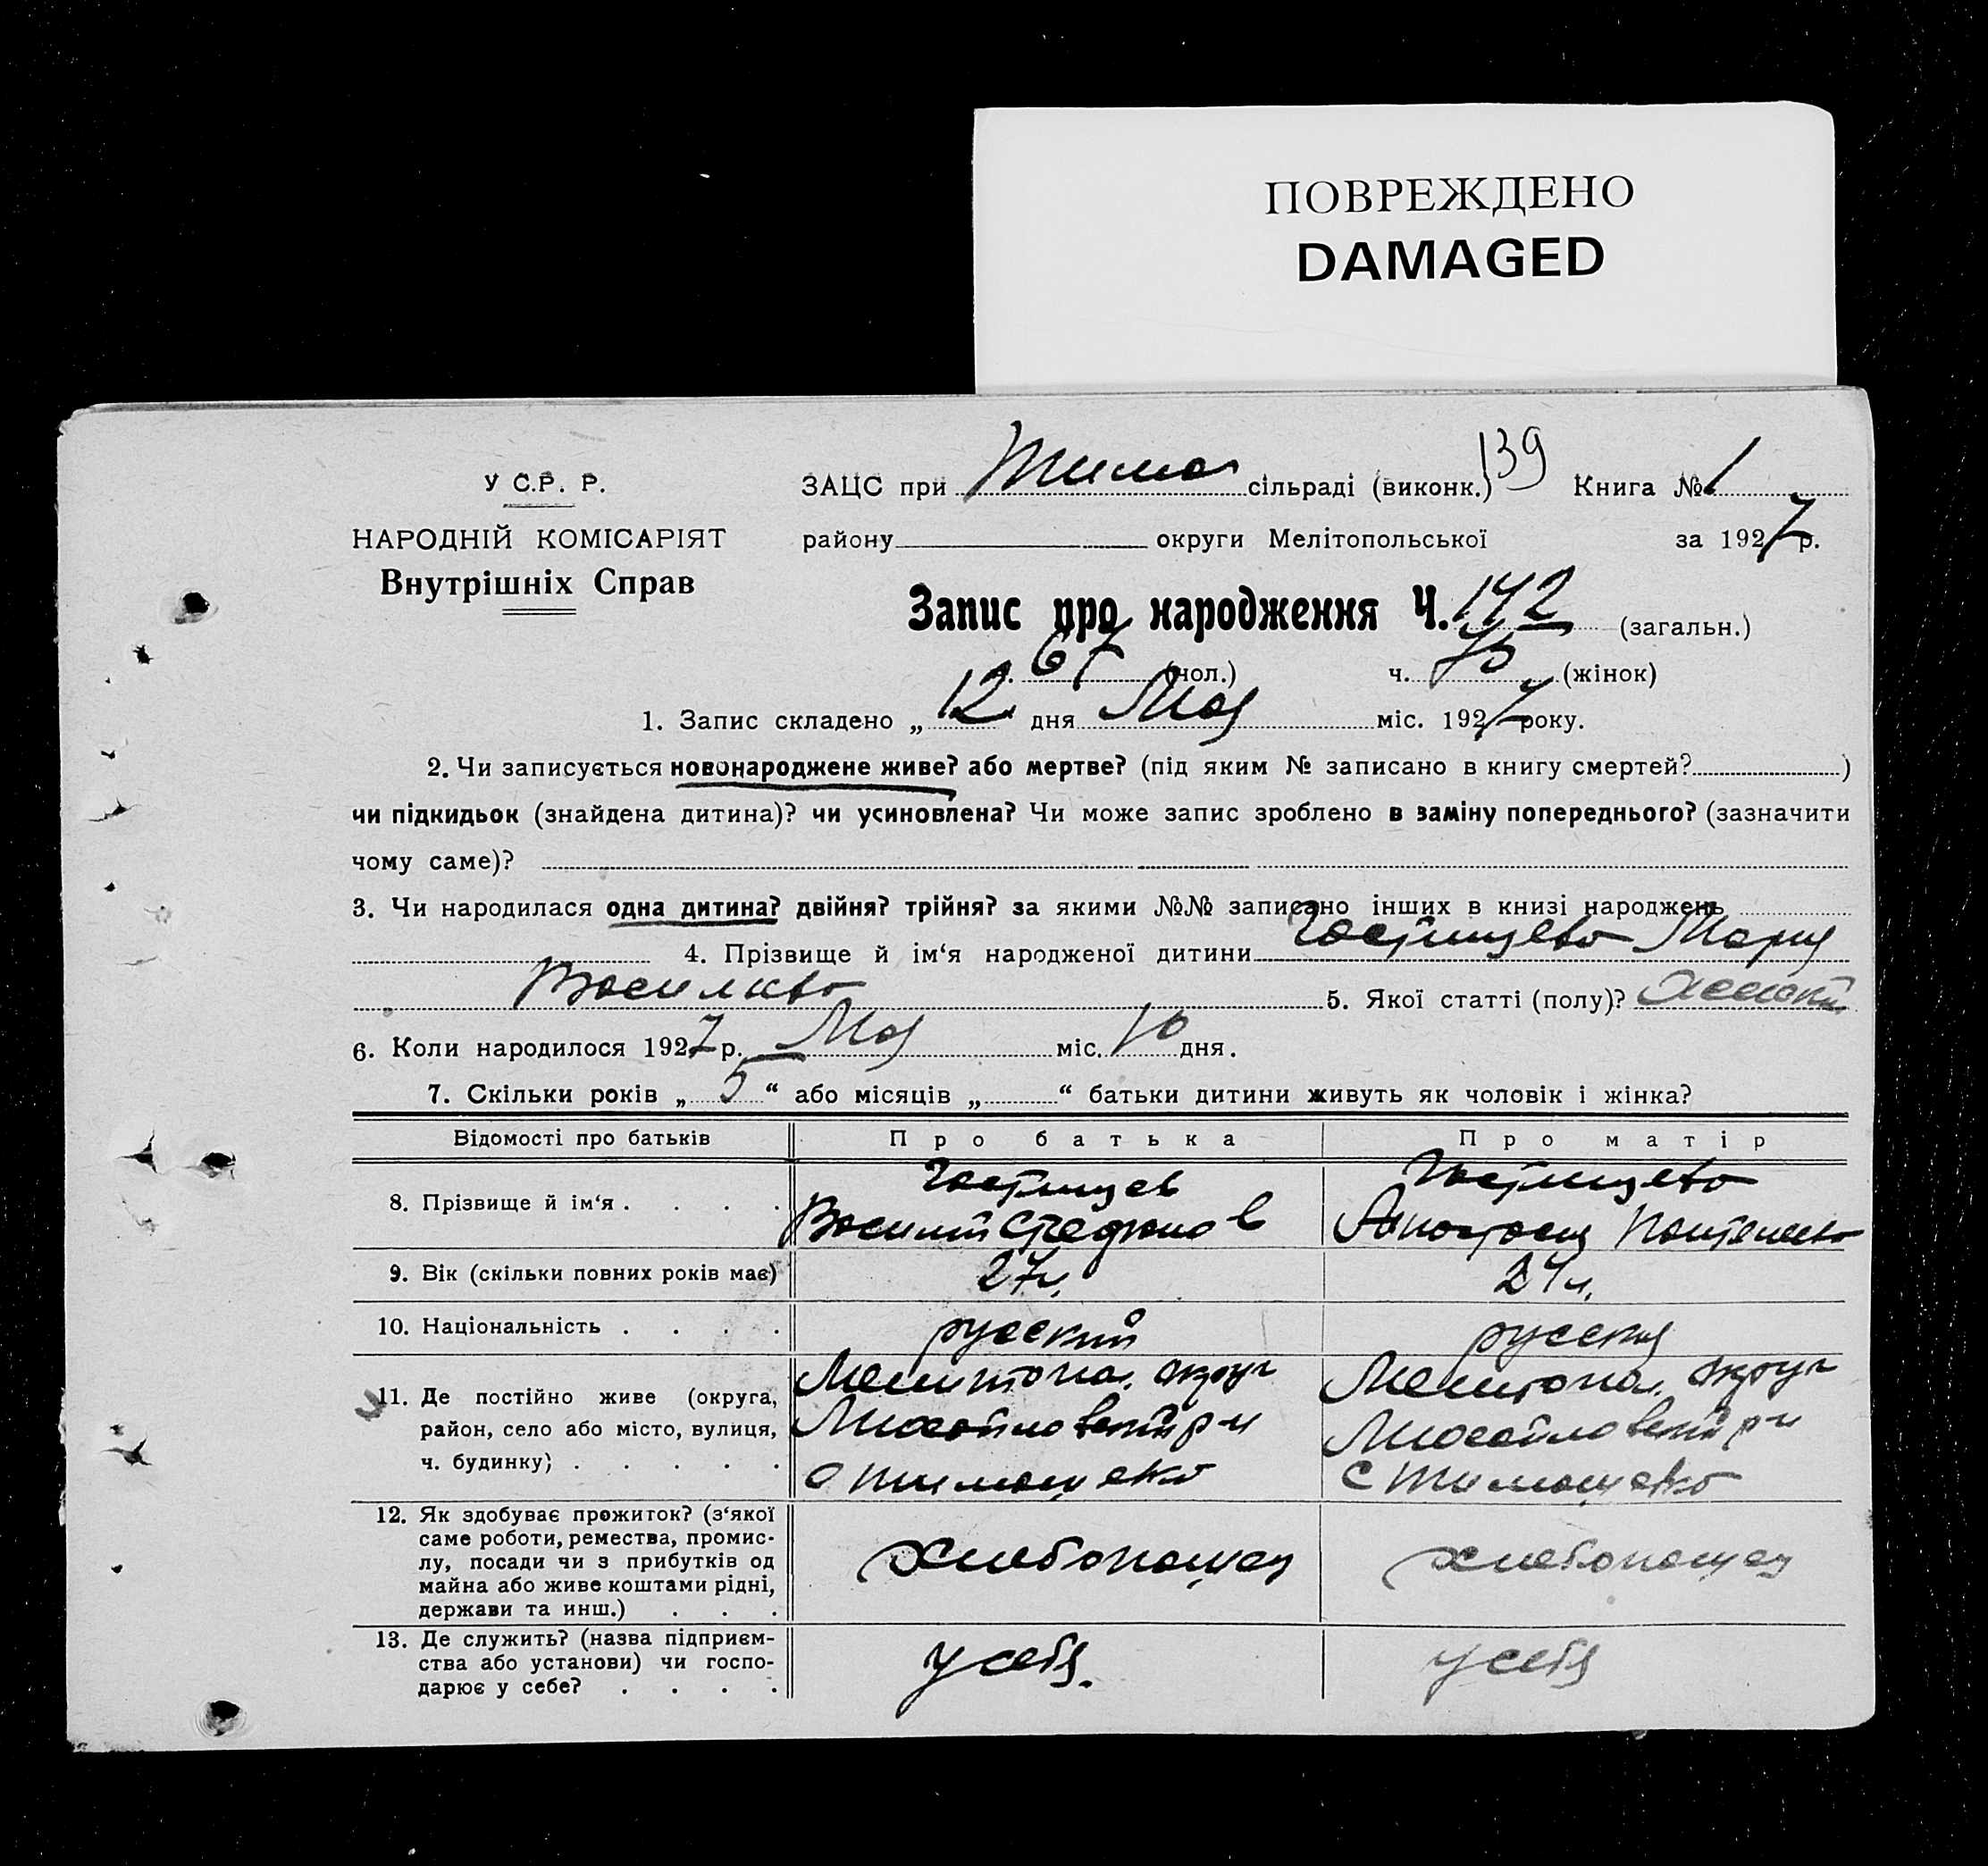 ПОВРЕЖДЕНО
DAMAGED
У С.Р. Р.
НАРОДНІЙ КОМІСАРІЯТ
Внутрішніх Справ
139
ЗАЦС при Тимо сільраді (виконк.) Книга № 1
району округи Мелітопольської за 1927 р.
Запис про народження Ч. 142 (загальн.)
ч. 67 (чол.) ч. 75 (жінок)
1. Запис складено „ 12 дня Мая міс. 1927 року.
2. Чи записується новонароджене живе? або мертве? (під яким № записано в книгу смертей? )
чи підкидьок (знайдена дитина)? чи усиновлена? Чи може запис зроблено в заміну попереднього? (зазначити
чому саме)?
3. Чи народилася одна дитина? двійня? трійня? за якими №№ записано інших в книзі народжень
4. Прізвище й ім‘я народженої дитини Гостищева Мария
Василева 5. Якої статті (полу)? женский
6. Коли народилося 1927 р. Мая міс. 10 дня.
7. Скільки років „ 5 “ або місяців „ “ батьки дитини живуть як чоловік і жінка?
Відомості про батьків Про батька Про матір
8. Прізвище й ім‘я . . . . Гостищев Гостищева
Василий Стефанов Анастасия
9. Вік (скільки повних років має) 27 л. 24 л.
10. Національність . . . . русский русская
11. Де постійно живе (округа, Мелитопол. округ Мелитопол. округ
район, село або місто, вулиця, Михайловский р-н Михайловский р-н
ч. будинку) . . . . . с Тимошевка с Тимошевка
12. Як здобуває прожиток? (з‘якої
саме роботи, ремества, промис-
лу, посади чи з прибутків од хлебопашец хлебопашец
майна або живе коштами рідні,
держави та инш.) . . .
13. Де служить? (назва підприєм-
ства або установи) чи госпо- у себя. у себя
дарює у себе? . . . .